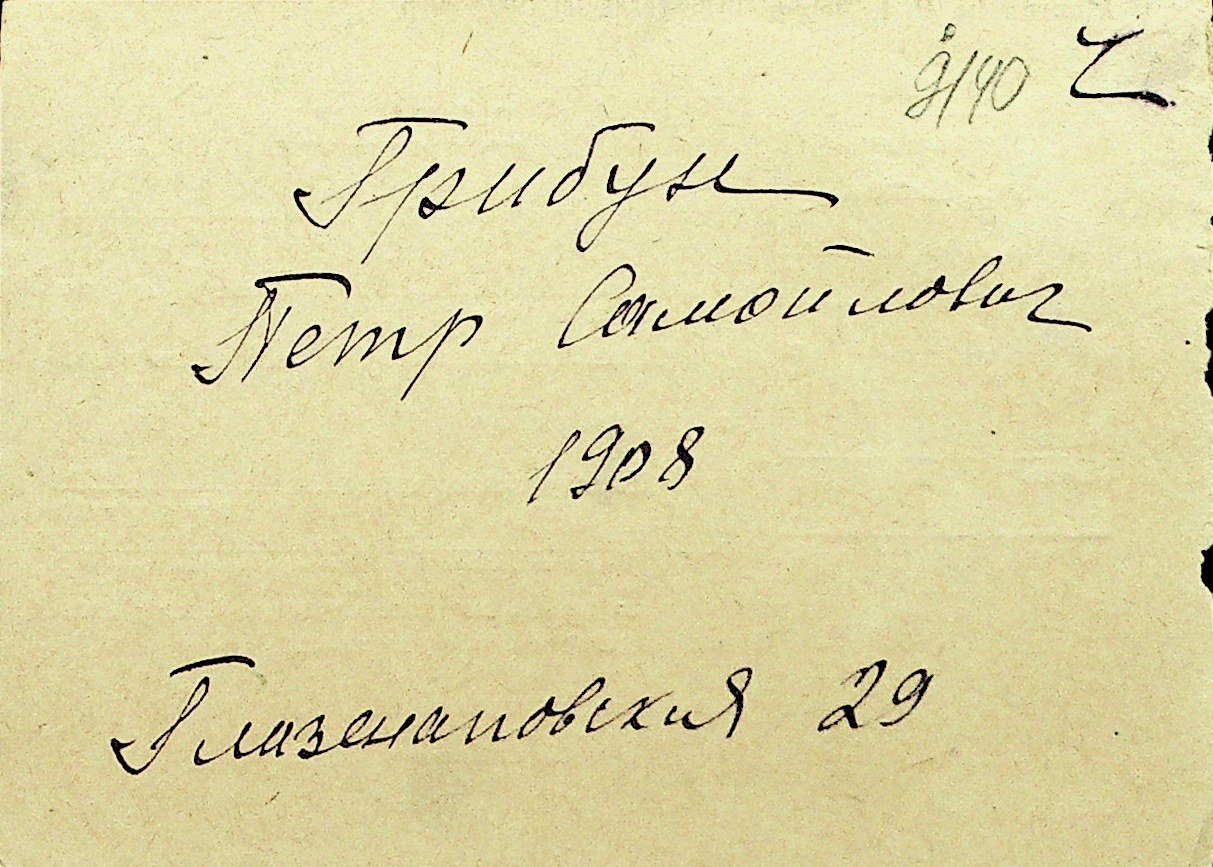 9140 Ч
Грибун
Петр Самойлович
1908
Глазенаповская 29